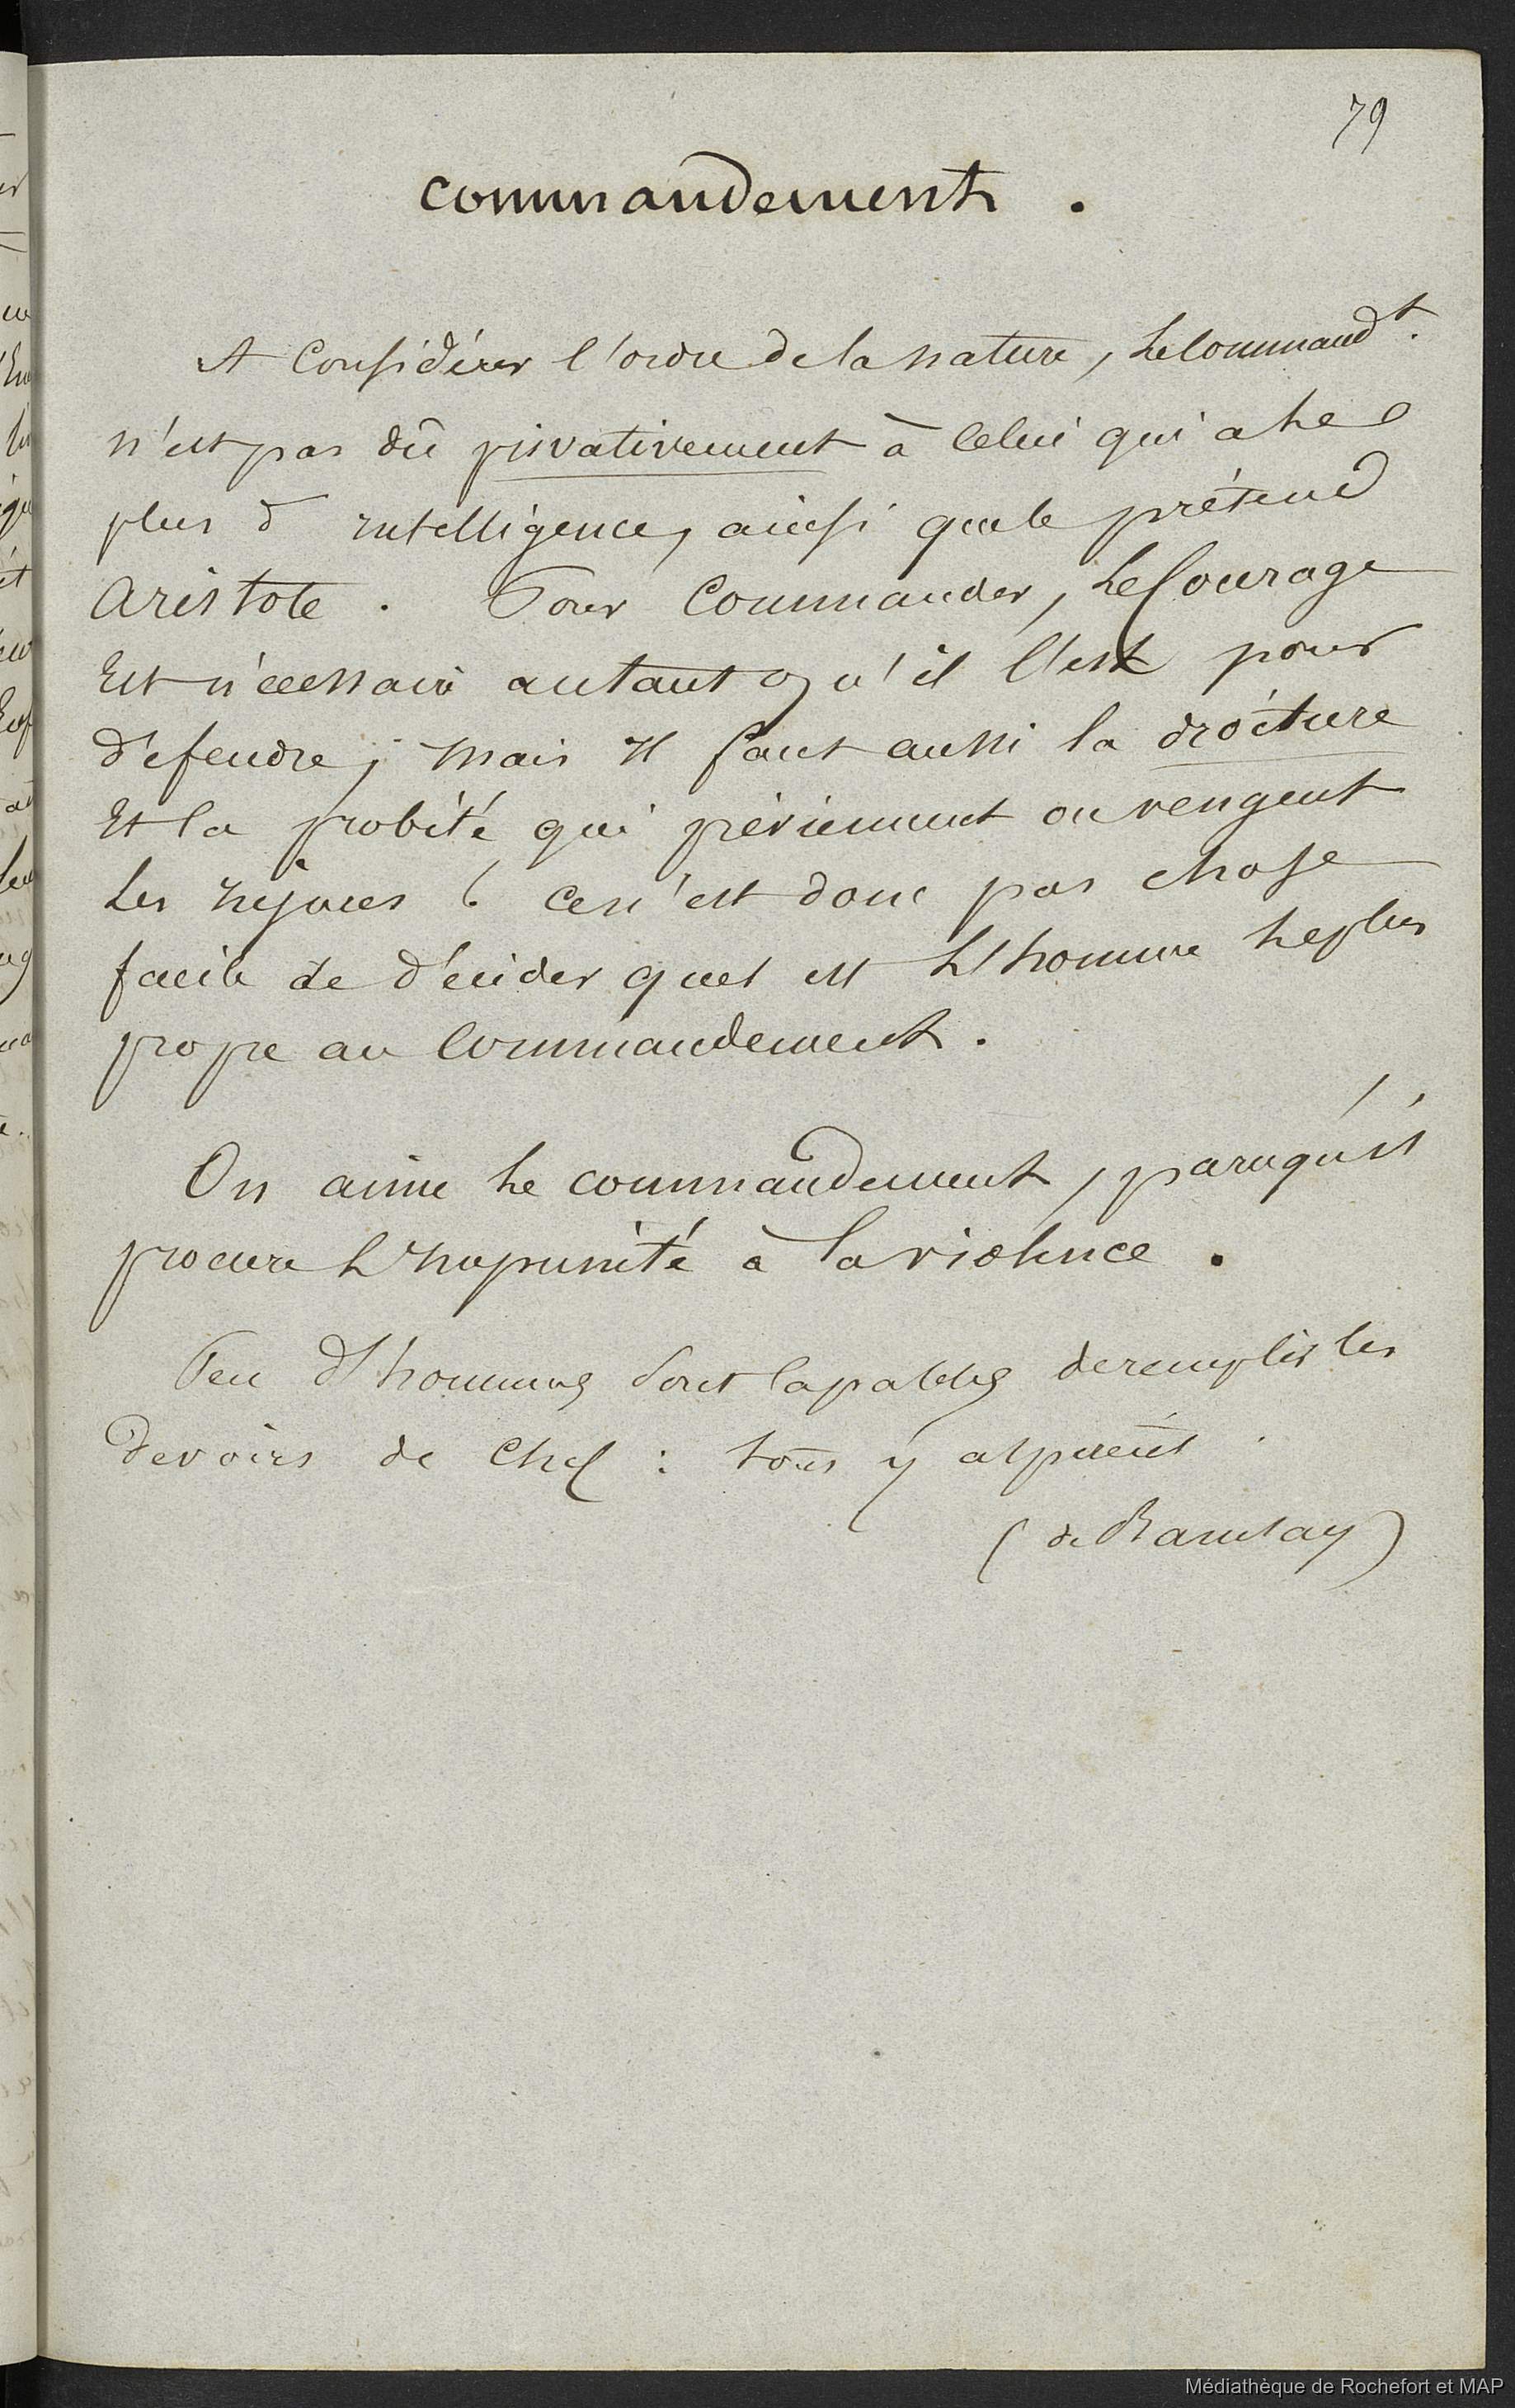 79
commandement .
A Considérer l'ordre de la nature, le Command.t
n'est pas dû privativement à Celui qui a le
plus d'intelligence, ainsi que le prétend
Aristote . Pour Commander, le Courage
Est nécessaire autant qu'il l'est pour
défendre ; mais il faut aussi la droiture
Et la probité qui préviennent ou vengent
les injures . ce n'est donc pas chose
facile de décider quel est l'homme le plus
propre au Commandement .
On aime le commandement, parce qu'il
procure l'impunité à la violence .
Peu d'hommes sont Capables de remplir les
devoirs de Chef : tous y aspirent .
(de Ramsay)
Médiathèque de Rochefort et MAP